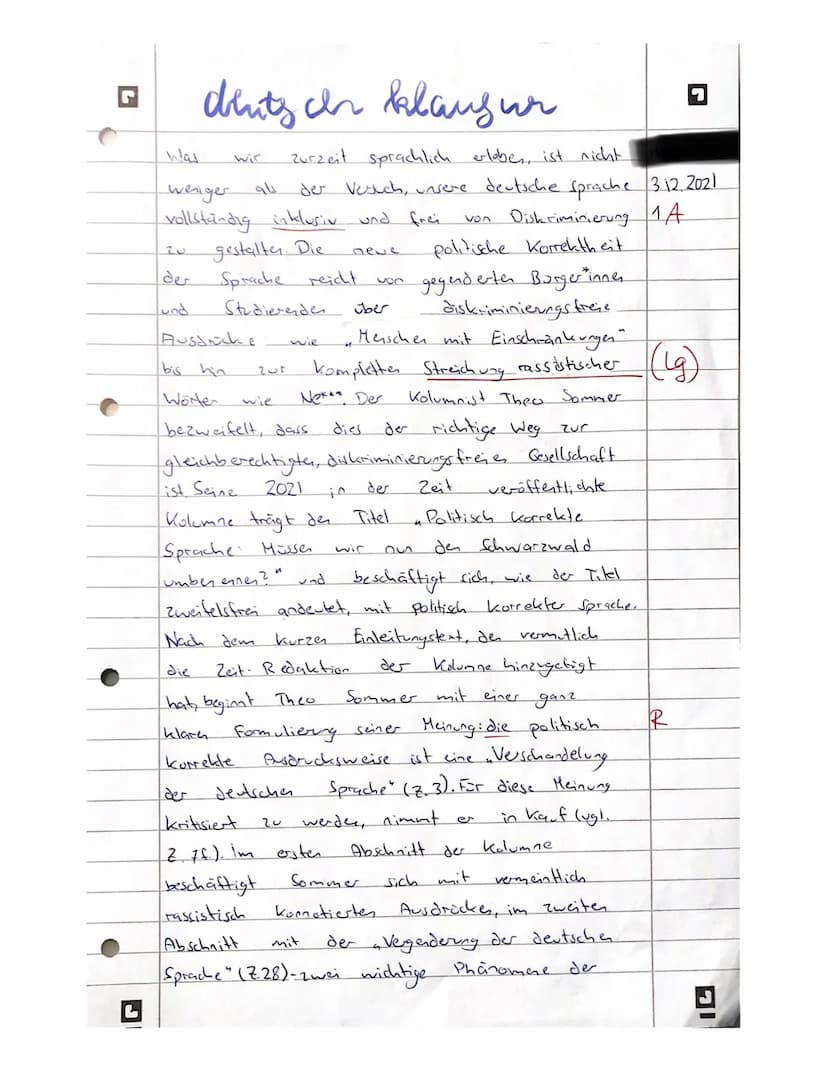 deutsch klausur
Was wir zurzeit sprachlich erleben, ist nicht
weniger als der Versuch, unsere deutsche Sprache 3.12.2021
vollständig inklusiv und frei von Diskriminierung 1 A
zu gestalten. Die neue politische Korrektheit
der Sprache reicht von gegenderten Bürger*innen
und Studierenden über diskriminierungsfreie
Ausdrücke wie „Menschen mit Einschränkungen"
bis hin zur kompletten Streichung rassistischer (Lg)
Wörter wie Ne***. Der Kolumnist Theo Sommer
bezweifelt, dass dies der richtige Weg zur
gleichberechtigten, diskriminierungsfreien Gesellschaft
ist. Seine 2021 in der Zeit veröffentlichte
Kolumne trägt den Titel „Politisch korrekte
Sprache: Müssen wir nun den Schwarzwald
umbenennen?" und beschäftigt sich, wie der Titel
zweifelsfrei andeutet, mit politisch korrekter Sprache.
Nach dem kurzen Einleitungstext, den vermutlich
die Zeit-Redaktion der Kolumne hinzugefügt
hat, beginnt Theo Sommer mit einer ganz
klaren Formulierung seiner Meinung: die politisch R
korrekte Ausdrucksweise ist eine „Verschandelung
der deutschen Sprache" (Z.3). Für diese Meinung
kritisiert zu werden, nimmt er in Kauf (vgl.
Z. 7f.). Im ersten Abschnitt der Kolumne
beschäftigt Sommer sich mit vermeintlich
rassistisch konnotierten Ausdrücken, im zweiten
Abschnitt mit der „Vergenderung der deutschen
Sprache" (Z.28)-zwei wichtige Phänomene der